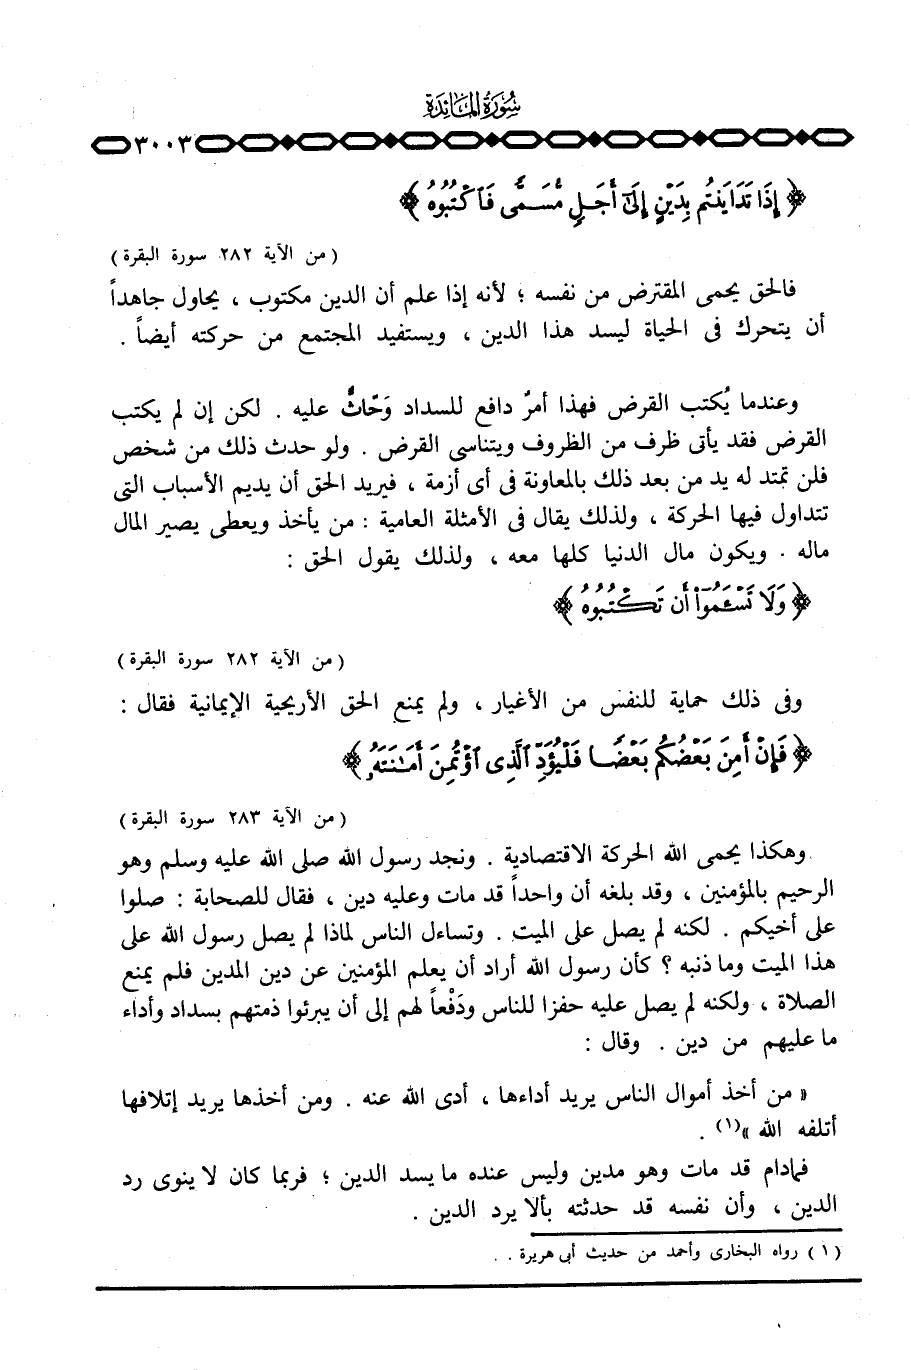 سُورَةُ المَائِدَةِ
٣٠٠٣
﴿ إِذَا تَدَايَنتُم بِدَيْنٍ إِلَىٰٓ أَجَلٍ مُّسَمًّى فَٱكْتُبُوهُ ﴾
( من الآية ٢٨٢ سورة البقرة )
فالحق يحمى المقترض من نفسه ؛ لأنه إذا علم أن الدين مكتوب ، يحاول جاهداً
أن يتحرك فى الحياة ليسد هذا الدين ، ويستفيد المجتمع من حركته أيضاً .
وعندما يُكتب القرض فهذا أمرٌ دافع للسداد وَحَّاثٌ عليه . لكن إن لم يكتب
القرض فقد يأتى ظرف من الظروف ويتناسى القرض . ولو حدث ذلك من شخص
فلن تمتد له يد من بعد ذلك بالمعاونة فى أى أزمة ، فيريد الحق أن يديم الأسباب التى
تتداول فيها الحركة ، ولذلك يقال فى الأمثلة العامية : من يأخذ ويعطى يصير المال
ماله . ويكون مال الدنيا كلها معه ، ولذلك يقول الحق :
﴿ وَلَا تَسْـَٔمُوٓا۟ أَن تَكْتُبُوهُ ﴾
( من الآية ٢٨٢ سورة البقرة )
وفى ذلك حماية للنفس من الأغيار ، ولم يمنع الحق الأريحية الإيمانية فقال :
﴿ فَإِنْ أَمِنَ بَعْضُكُم بَعْضًا فَلْيُؤَدِّ ٱلَّذِى ٱؤْتُمِنَ أَمَـٰنَتَهُۥ ﴾
( من الآية ٢٨٣ سورة البقرة )
وهكذا يحمى الله الحركة الاقتصادية . ونجد رسول الله صلى الله عليه وسلم وهو
الرحيم بالمؤمنين ، وقد بلغه أن واحداً قد مات وعليه دين ، فقال للصحابة : صلوا
على أخيكم . لكنه لم يصل على الميت . وتساءل الناس لماذا لم يصل رسول الله على
هذا الميت وما ذنبه ؟ كأن رسول الله أراد أن يعلم المؤمنين عن دين المدين فلم يمنع
الصلاة ، ولكنه لم يصل عليه حفزا للناس ودَفْعاً لهم إلى أن يبرئوا ذمتهم بسداد وأداء
ما عليهم من دين . وقال :
« من أخذ أموال الناس يريد أداءها ، أدى الله عنه . ومن أخذها يريد إتلافها
أتلفه الله »(١) .
فمادام قد مات وهو مدين وليس عنده ما يسد الدين ؛ فربما كان لا ينوى رد
الدين ، وأن نفسه قد حدثته بألا يرد الدين .
( ١ ) رواه البخارى وأحمد من حديث أبى هريرة . .